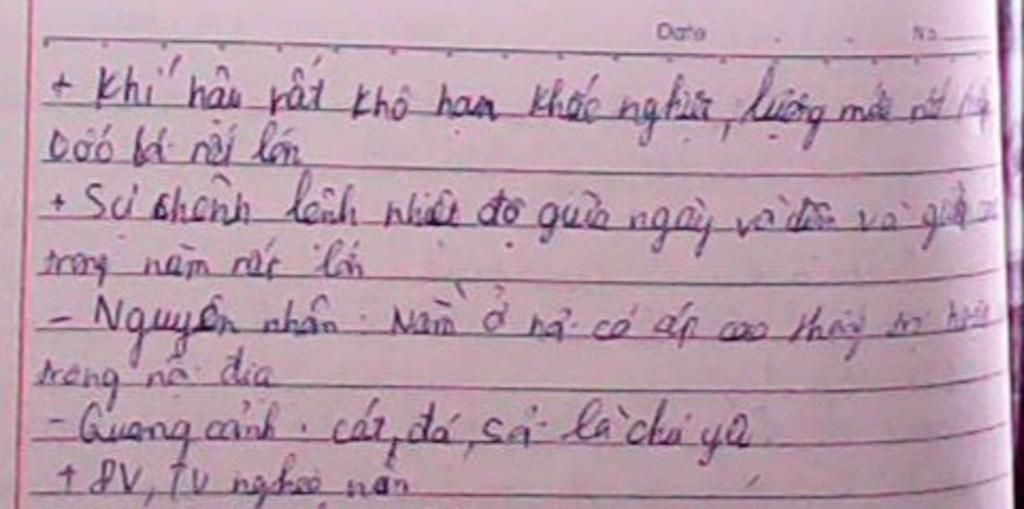 Date No
+ Khí hậu rất khô hạn khắc nghiệt, lượng mưa rất
bốc hơi rất lớn
+ Sự chênh lệnh nhiệt độ giữa ngày và đêm và giữa
trong năm rất lớn
- Nguyên nhân: Nằm ở có áp cao thống trị hoặc
trong nội địa
- Quang cảnh: cát, đá, sỏi là chủ yếu
+ ĐV, TV nghèo nàn